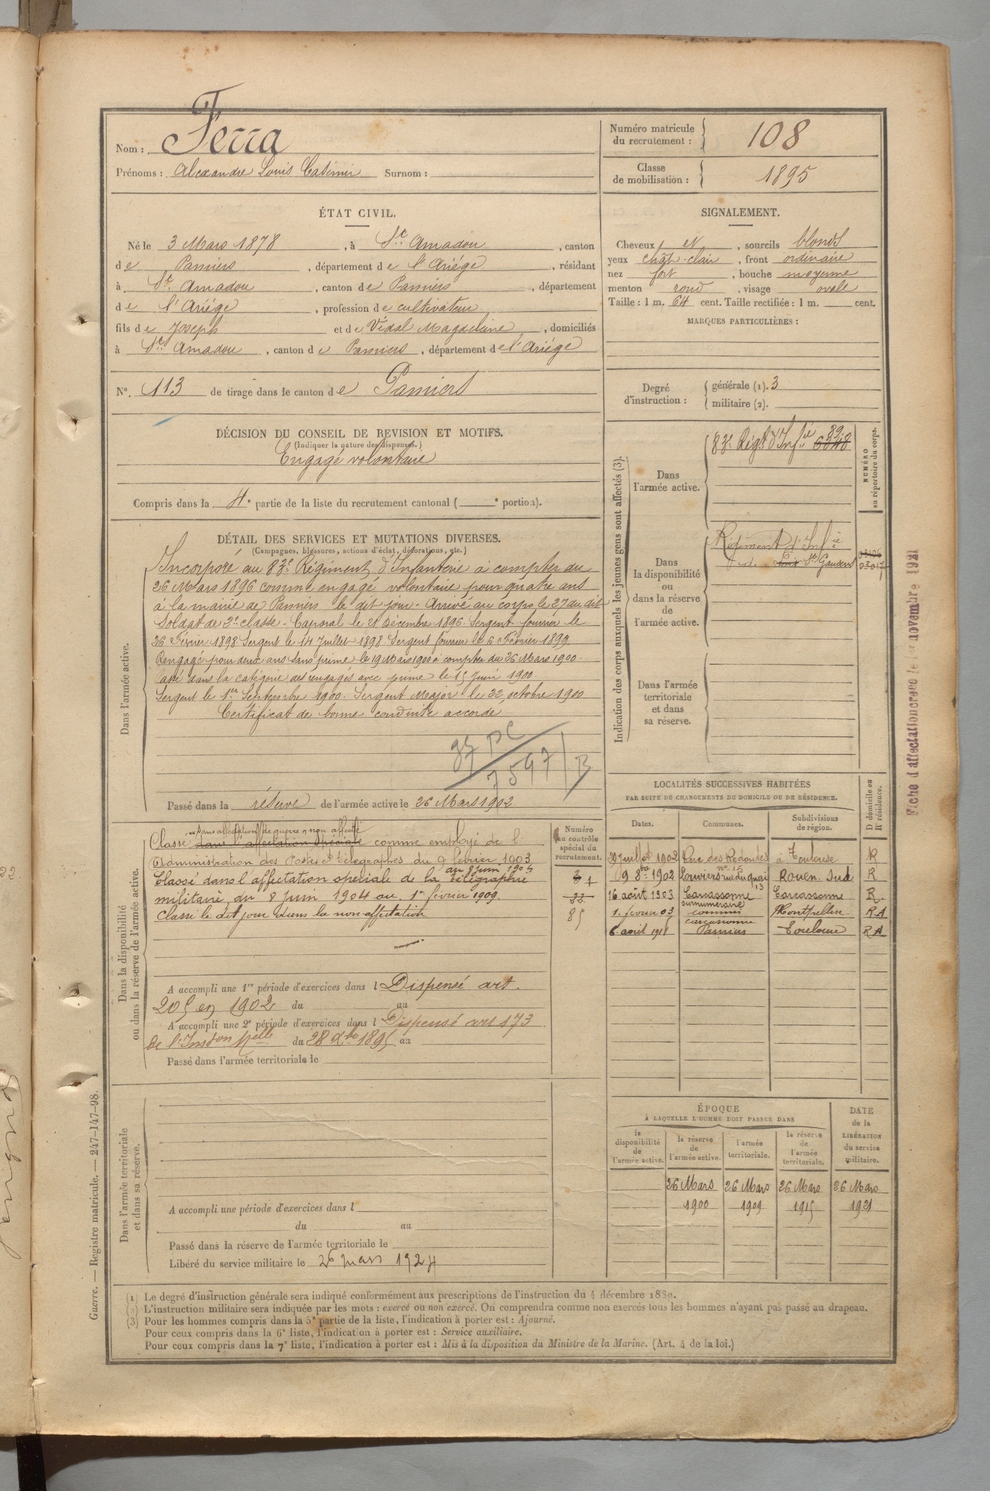 Nom : Ferra
Prénoms : Alexandre Louis Casimir Surnom :
Numéro matricule du recrutement : 108
Classe de mobilisation : 1895
ÉTAT CIVIL.
Né le 3 Mars 1878, à St Amadou, canton
de Pamiers, département de l'Ariège, résidant
à St Amadou, canton de Pamiers, département
de l'Ariège, profession de cultivateur
fils de Joseph et de Vidal Magdeleine, domiciliés
à St Amadou, canton de Pamiers, département de l'Ariège
N° 113 de tirage dans le canton de Pamiers
SIGNALEMENT.
Cheveux et, sourcils blonds
yeux chat. clair, front ordinaire
nez fort, bouche moyenne
menton rond, visage ovale
Taille : 1 m. 64 cent. Taille rectifiée : 1 m. cent.
MARQUES PARTICULIÈRES :
Degré d'instruction : générale (1). 3
militaire (2).
DÉCISION DU CONSEIL DE REVISION ET MOTIFS.
(Indiquer la nature des dispenses.)
Engagé volontaire
Compris dans la 4e partie de la liste du recrutement cantonal ( e portion).
DÉTAIL DES SERVICES ET MUTATIONS DIVERSES.
(Campagnes, blessures, actions d'éclat, décorations, etc.)
Dans l'armée active.
Incorporé au 83e Régiment d'Infanterie à compter du
26 Mars 1896 comme engagé volontaire pour quatre ans
à la mairie de Pamiers le dit jour. Arrivé au corps le 27 du dit
Soldat de 2e classe. Caporal le Décembre 1896 Sergent fourrier le
26 Février 1898 Sergent le 14 Juillet 1898 Sergent fourrier le 6 Février 1899
Rengagé pour deux ans sans prime le 19 Mars 1900 à compter du 26 Mars 1900
dans la catégorie des engagés avec prime le 1er Juin 1900
Sergent le 1er Septembre 1900. Sergent Major le 22 octobre 1900
Certificat de bonne conduite accordé
7597/B
Passé dans la réserve de l'armée active le 26 Mars 1902
Indication des corps auxquels les jeunes gens sont affectés (3).
NUMÉRO au répertoire du corps.
Dans l'armée active.
83e Régt d'Infie
Dans la disponibilité ou dans la réserve de l'armée active.
Régiment d'Infie
de St Gaudens
Dans l'armée territoriale et dans sa réserve.
Fiche d'affectation créée le 1er novembre 1921
Dans la disponibilité ou dans la réserve de l'armée active.
Numéro au contrôle spécial du recrutement.
Classé dans l'affectation spéciale comme employé de l'
Administration des Postes et télégraphes du 9 février 1903
Classé dans l'affectation spéciale de la télégraphie
militaire, du 8 juin 1904 au 1er février 1909
Classé le dit jour dans la non affectation
A accompli une 1re période d'exercices dans l Dispensé art.
205 en 1902 du au
A accompli une 2e période d'exercices dans l Dispensé art 173
de l'Inston Melle du 28 Xbre 1895 au
Passé dans l'armée territoriale le
LOCALITÉS SUCCESSIVES HABITÉES
PAR SUITE DE CHANGEMENTS DE DOMICILE OU DE RÉSIDENCE.
Dates. Communes. Subdivisions de région. D domicile ou R résidence.
Juillet 1902 à Toulouse R
19 8bre 1902 Louviers rue du quai Rouen Sud R
16 août 1903 Carcassonne Carcassonne R
1. février 03 Montpellier R A
6 août 191 Pamiers Toulouse R A
Dans l'armée territoriale et dans sa réserve.
A accompli une période d'exercices dans l
du au
Passé dans la réserve de l'armée territoriale le
Libéré du service militaire le 26 mars 1924
ÉPOQUE
À LAQUELLE L'HOMME DOIT PASSER DANS
la disponibilité de l'armée active.
la réserve de l'armée active.
l'armée territoriale.
la réserve de l'armée territoriale.
DATE de la LIBÉRATION du service militaire.
26 Mars 26 Mars 26 Mars 26 Mars
1900 1909 1915 1921
Guerre. — Registre matricule. — 247-147-98.
(1) Le degré d'instruction générale sera indiqué conformément aux prescriptions de l'instruction du 4 décembre 1889.
(2) L'instruction militaire sera indiquée par les mots : exercé ou non exercé. On comprendra comme non exercés tous les hommes n'ayant pas passé au drapeau.
(3) Pour les hommes compris dans la 5e partie de la liste, l'indication à porter est : Ajourné.
Pour ceux compris dans la 6e liste, l'indication à porter est : Service auxiliaire.
Pour ceux compris dans la 7e liste, l'indication à porter est : Mis à la disposition du Ministre de la Marine. (Art. 4 de la loi.)